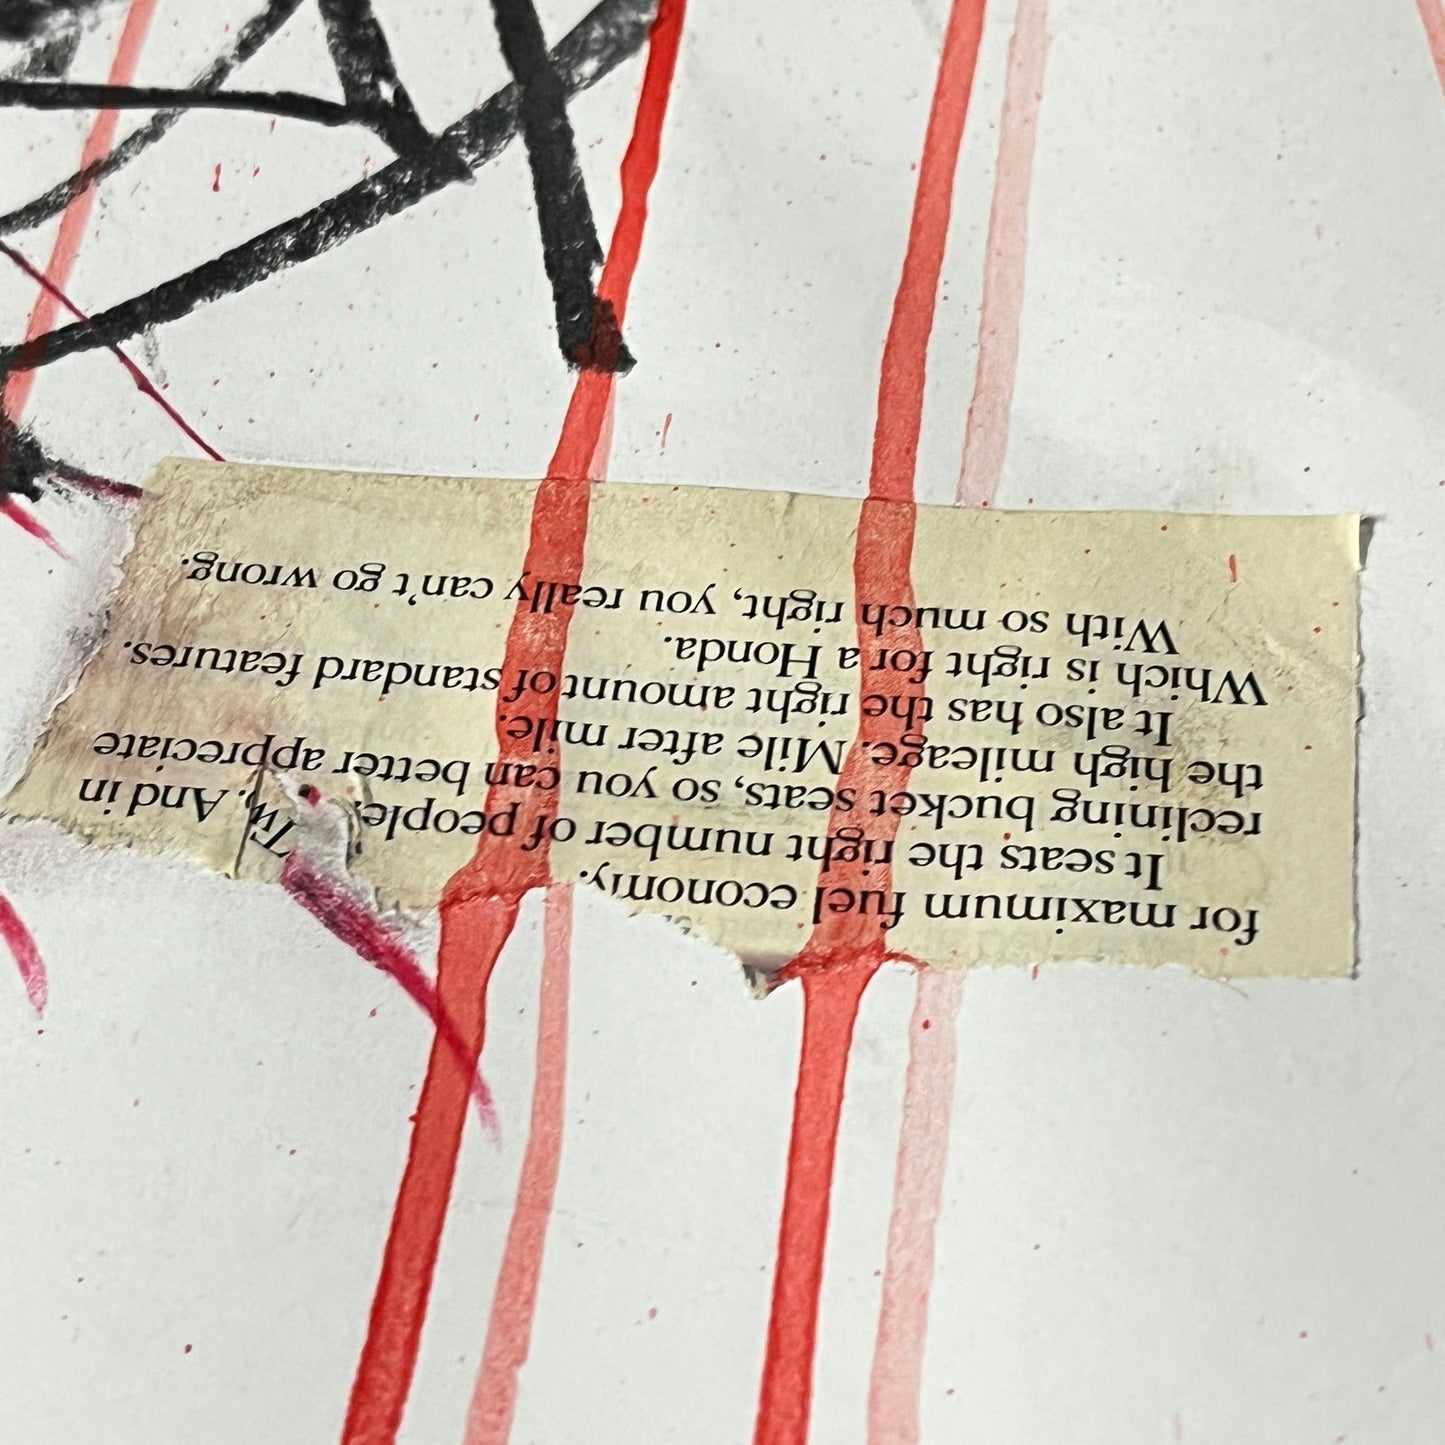 for maximum fuel economy.
It seats the right number of people, Tw. And in
reclining bucket seats, so you can better appreciate
the high mileage. Mile after mile.
It also has the right amount of standard features.
Which is right for a Honda.
With so much right, you really can't go wrong.